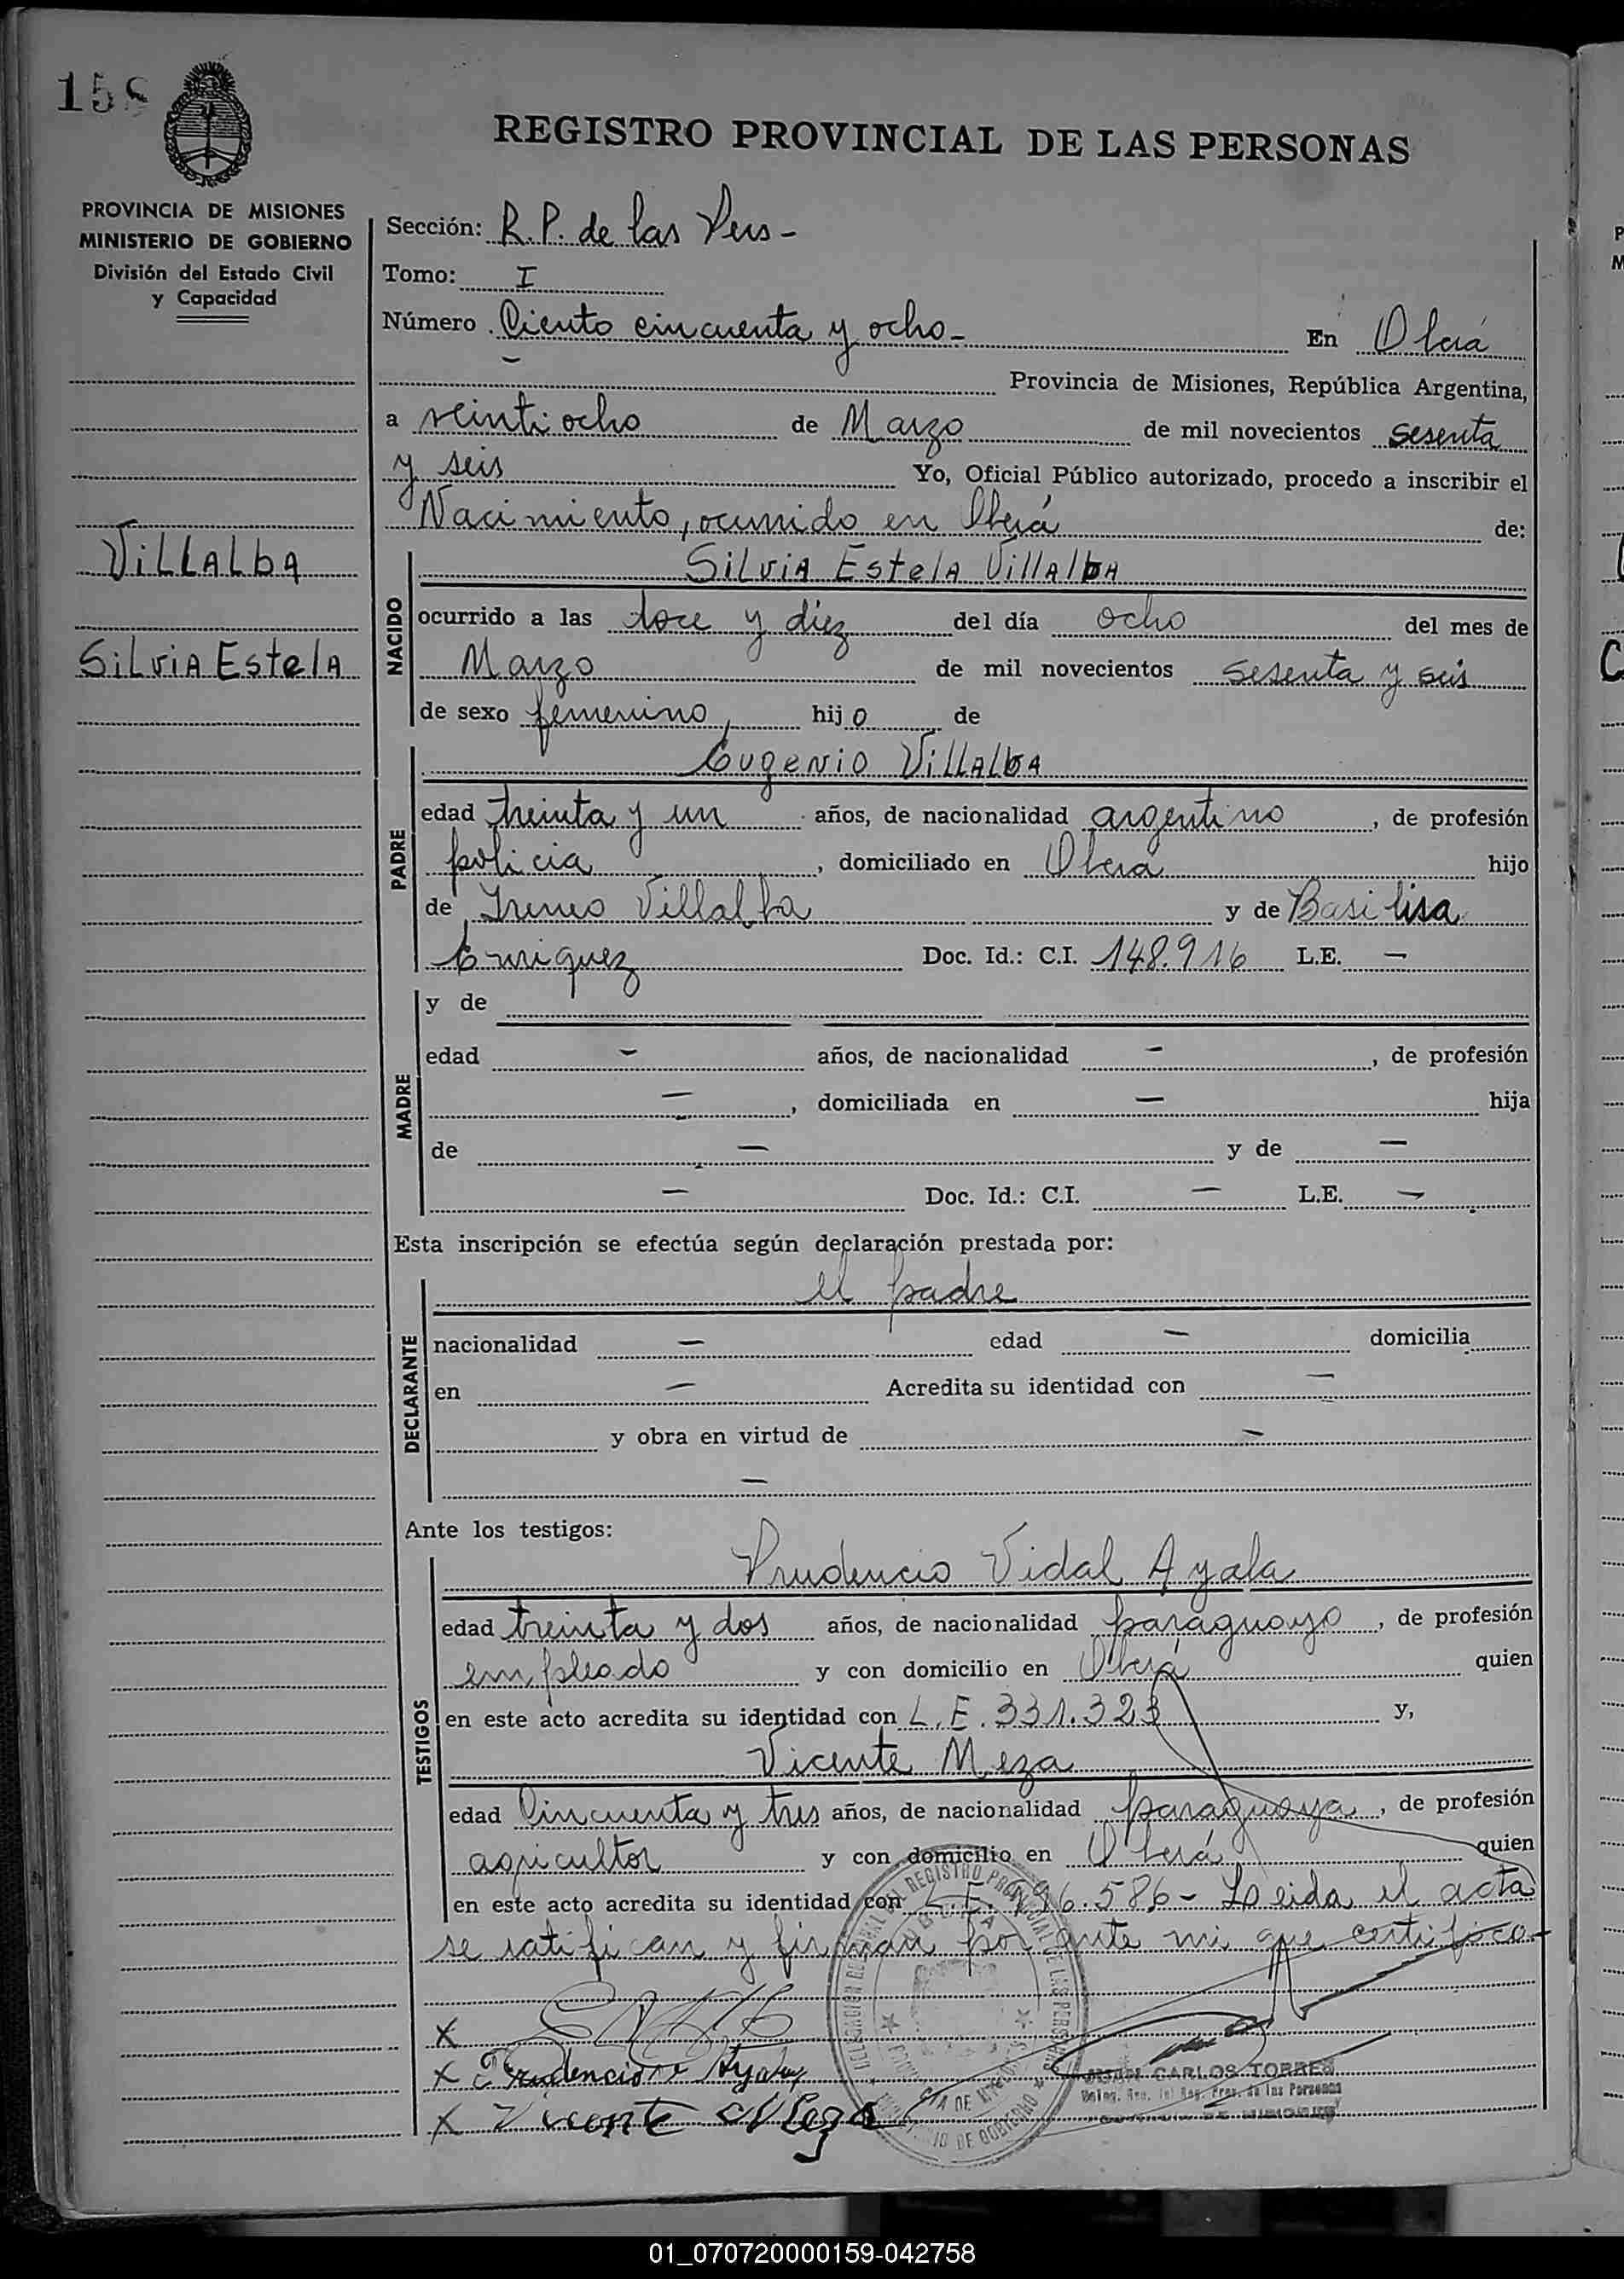 158
REGISTRO PROVINCIAL DE LAS PERSONAS
PROVINCIA DE MISIONES
MINISTERIO DE GOBIERNO
División del Estado Civil
y Capacidad
VILLALBA
Silvia Estela
Sección: R.P. de las Pers-
Tomo: I
Número Ciento cincuenta y ocho- En Oberá
Provincia de Misiones, República Argentina,
a veintiocho de Marzo de mil novecientos sesenta
y seis Yo, Oficial Público autorizado, procedo a inscribir el
Nacimiento, ocurrido en Oberá de:
NACIDO
Silvia Estela Villalba
ocurrido a las doce y diez del día ocho del mes de
Marzo de mil novecientos sesenta y seis
de sexo femenino, hijo de
PADRE
Eugenio Villalba
edad treinta y un años, de nacionalidad argentino, de profesión
policia, domiciliado en Oberá hijo
de Ireneo Villalba y de Basilisa
Enriquez Doc. Id.: C.I. 148.916 L.E. —
MADRE
y de
edad — años, de nacionalidad —, de profesión
—, domiciliada en — hija
de — y de —
— Doc. Id.: C.I. — L.E. —
Esta inscripción se efectúa según declaración prestada por:
DECLARANTE
el padre
nacionalidad — edad — domicilia
en — Acredita su identidad con —
y obra en virtud de —
—
Ante los testigos:
TESTIGOS
Prudencio Vidal Ayala
edad treinta y dos años, de nacionalidad paraguayo, de profesión
empleado y con domicilio en Oberá quien
en este acto acredita su identidad con L.E. 331.323 y,
Vicente Meza
edad Cincuenta y tres años, de nacionalidad paraguaya, de profesión
agricultor y con domicilio en Oberá quien
en este acto acredita su identidad con L.E. 6.586- Leida el acta
se ratifican y firman por ante mi que certifico-
x
x Prudencio Ayala
x Vicente Meza
DELEGACION REGISTRO PROVINCIAL DE LAS PERSONAS
MINISTERIO DE GOBIERNO
JUAN CARLOS TORRES
Reg. Prov. de las Personas
01_070720000159-042758